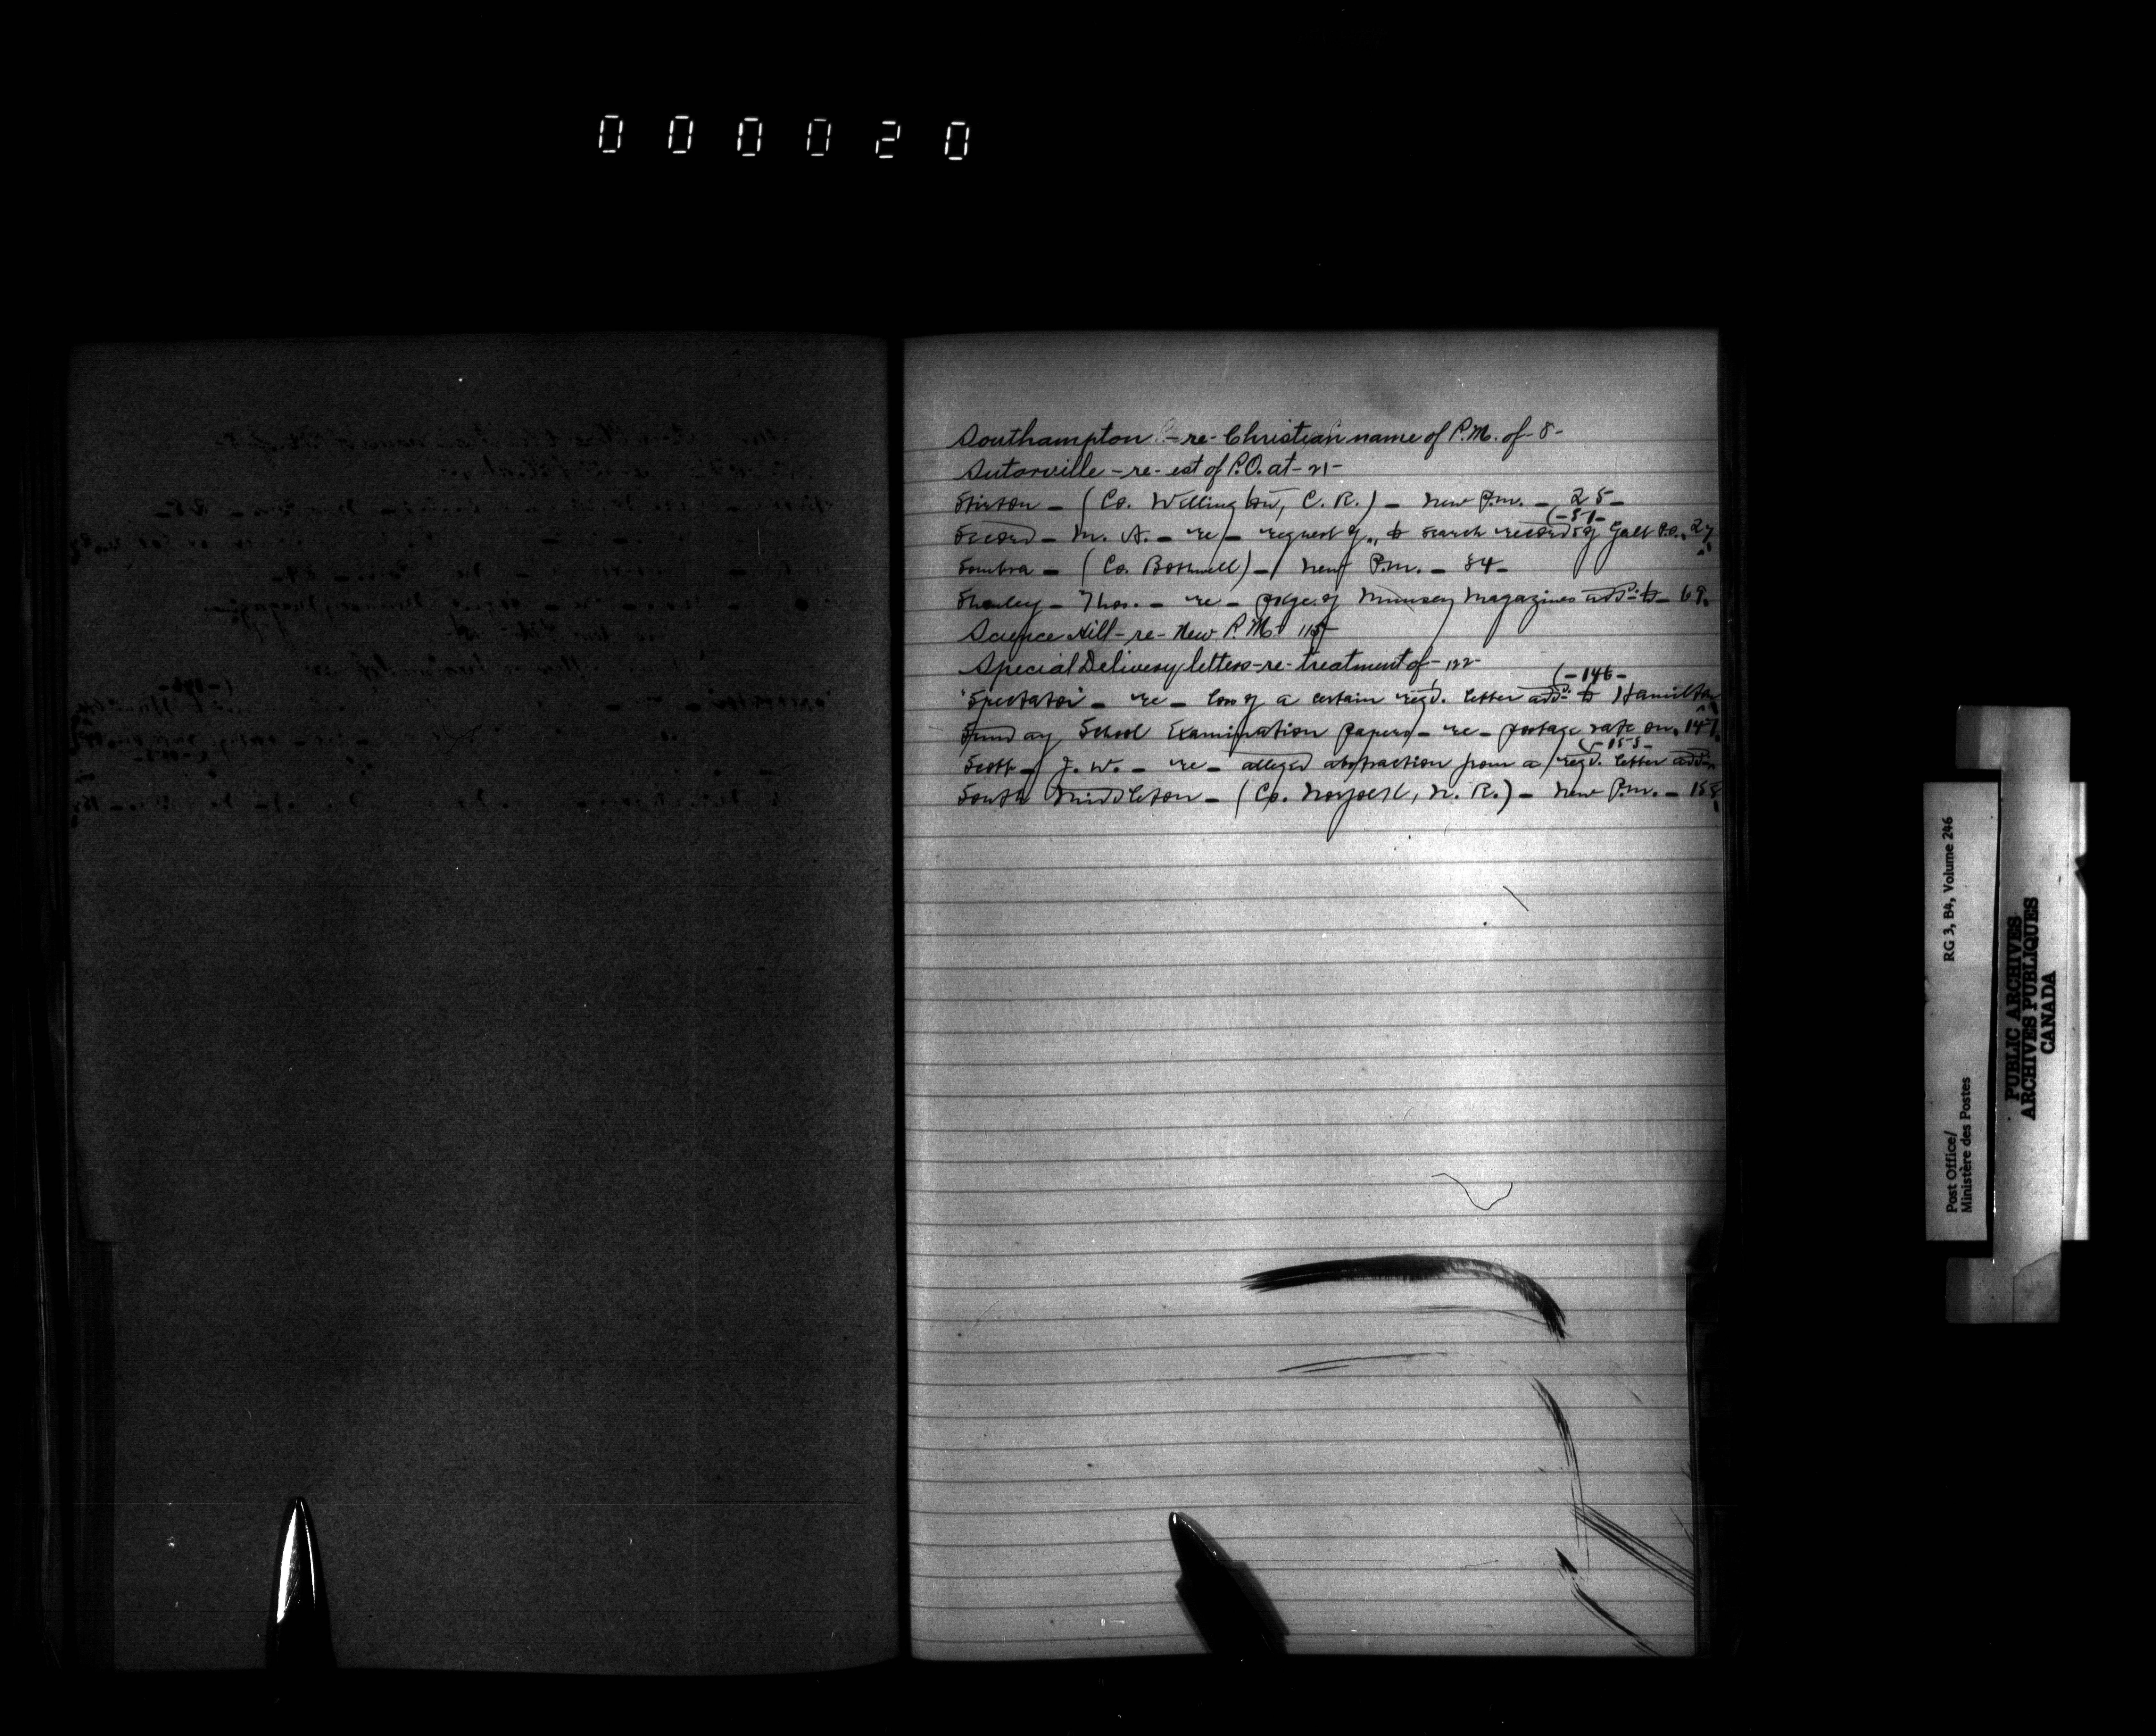 000020
Southampton - re - Christian name of P.M. of - 8 -
Sutorville - re - est of P.O. at - 21 -
Stirton - (Co. Wellington, C. R.) - New P.m. - 25 -
(- 51 -
Secord - M. A. - re - request of, to search records of Galt P.O. 27
Sombra - (Co. Bothwell) - New P.m. - 34 -
Shanley - Thos. - re - pstge. of Munsey Magazines add. to - 69
Science Hill - re - New P.M. 115 -
Special Delivery letters - re - treatment of - 122 -
(- 146 -
"Spectator" - re - loss of a certain regd. letter add. to Hamilton
Sunday School Examination papers - re - postage rate on, 147
(- 155 -
Scott - J. W. - re - alleged abstraction from a regd. letter add.
South Middleton - (Co. Norfolk, N. R.) - New P.m. - 158
Post Office/
Ministère des Postes
RG 3, B4, Volume 246
PUBLIC ARCHIVES
ARCHIVES PUBLIQUES
CANADA